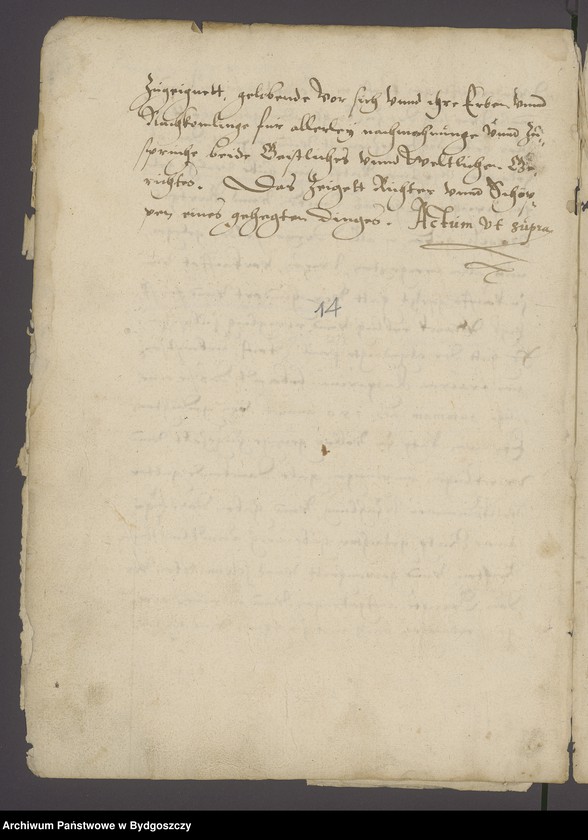 Zugeignett, gelobende vor sich vnnd ihre Erben vnnd
Nachkomlinge fur allerley nachmahnunge vnnd Zu-
spruche beide Geistliches vnnd Weltliches Ge-
richtes. Das Zeigett Richter vnnd Schop-
pen eines gehegten Dinges. Actum vt supra
14
Archiwum Państwowe w Bydgoszczy